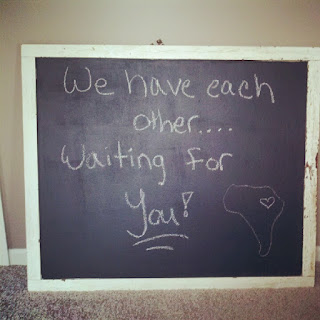 We have each
other....
Waiting for
You!